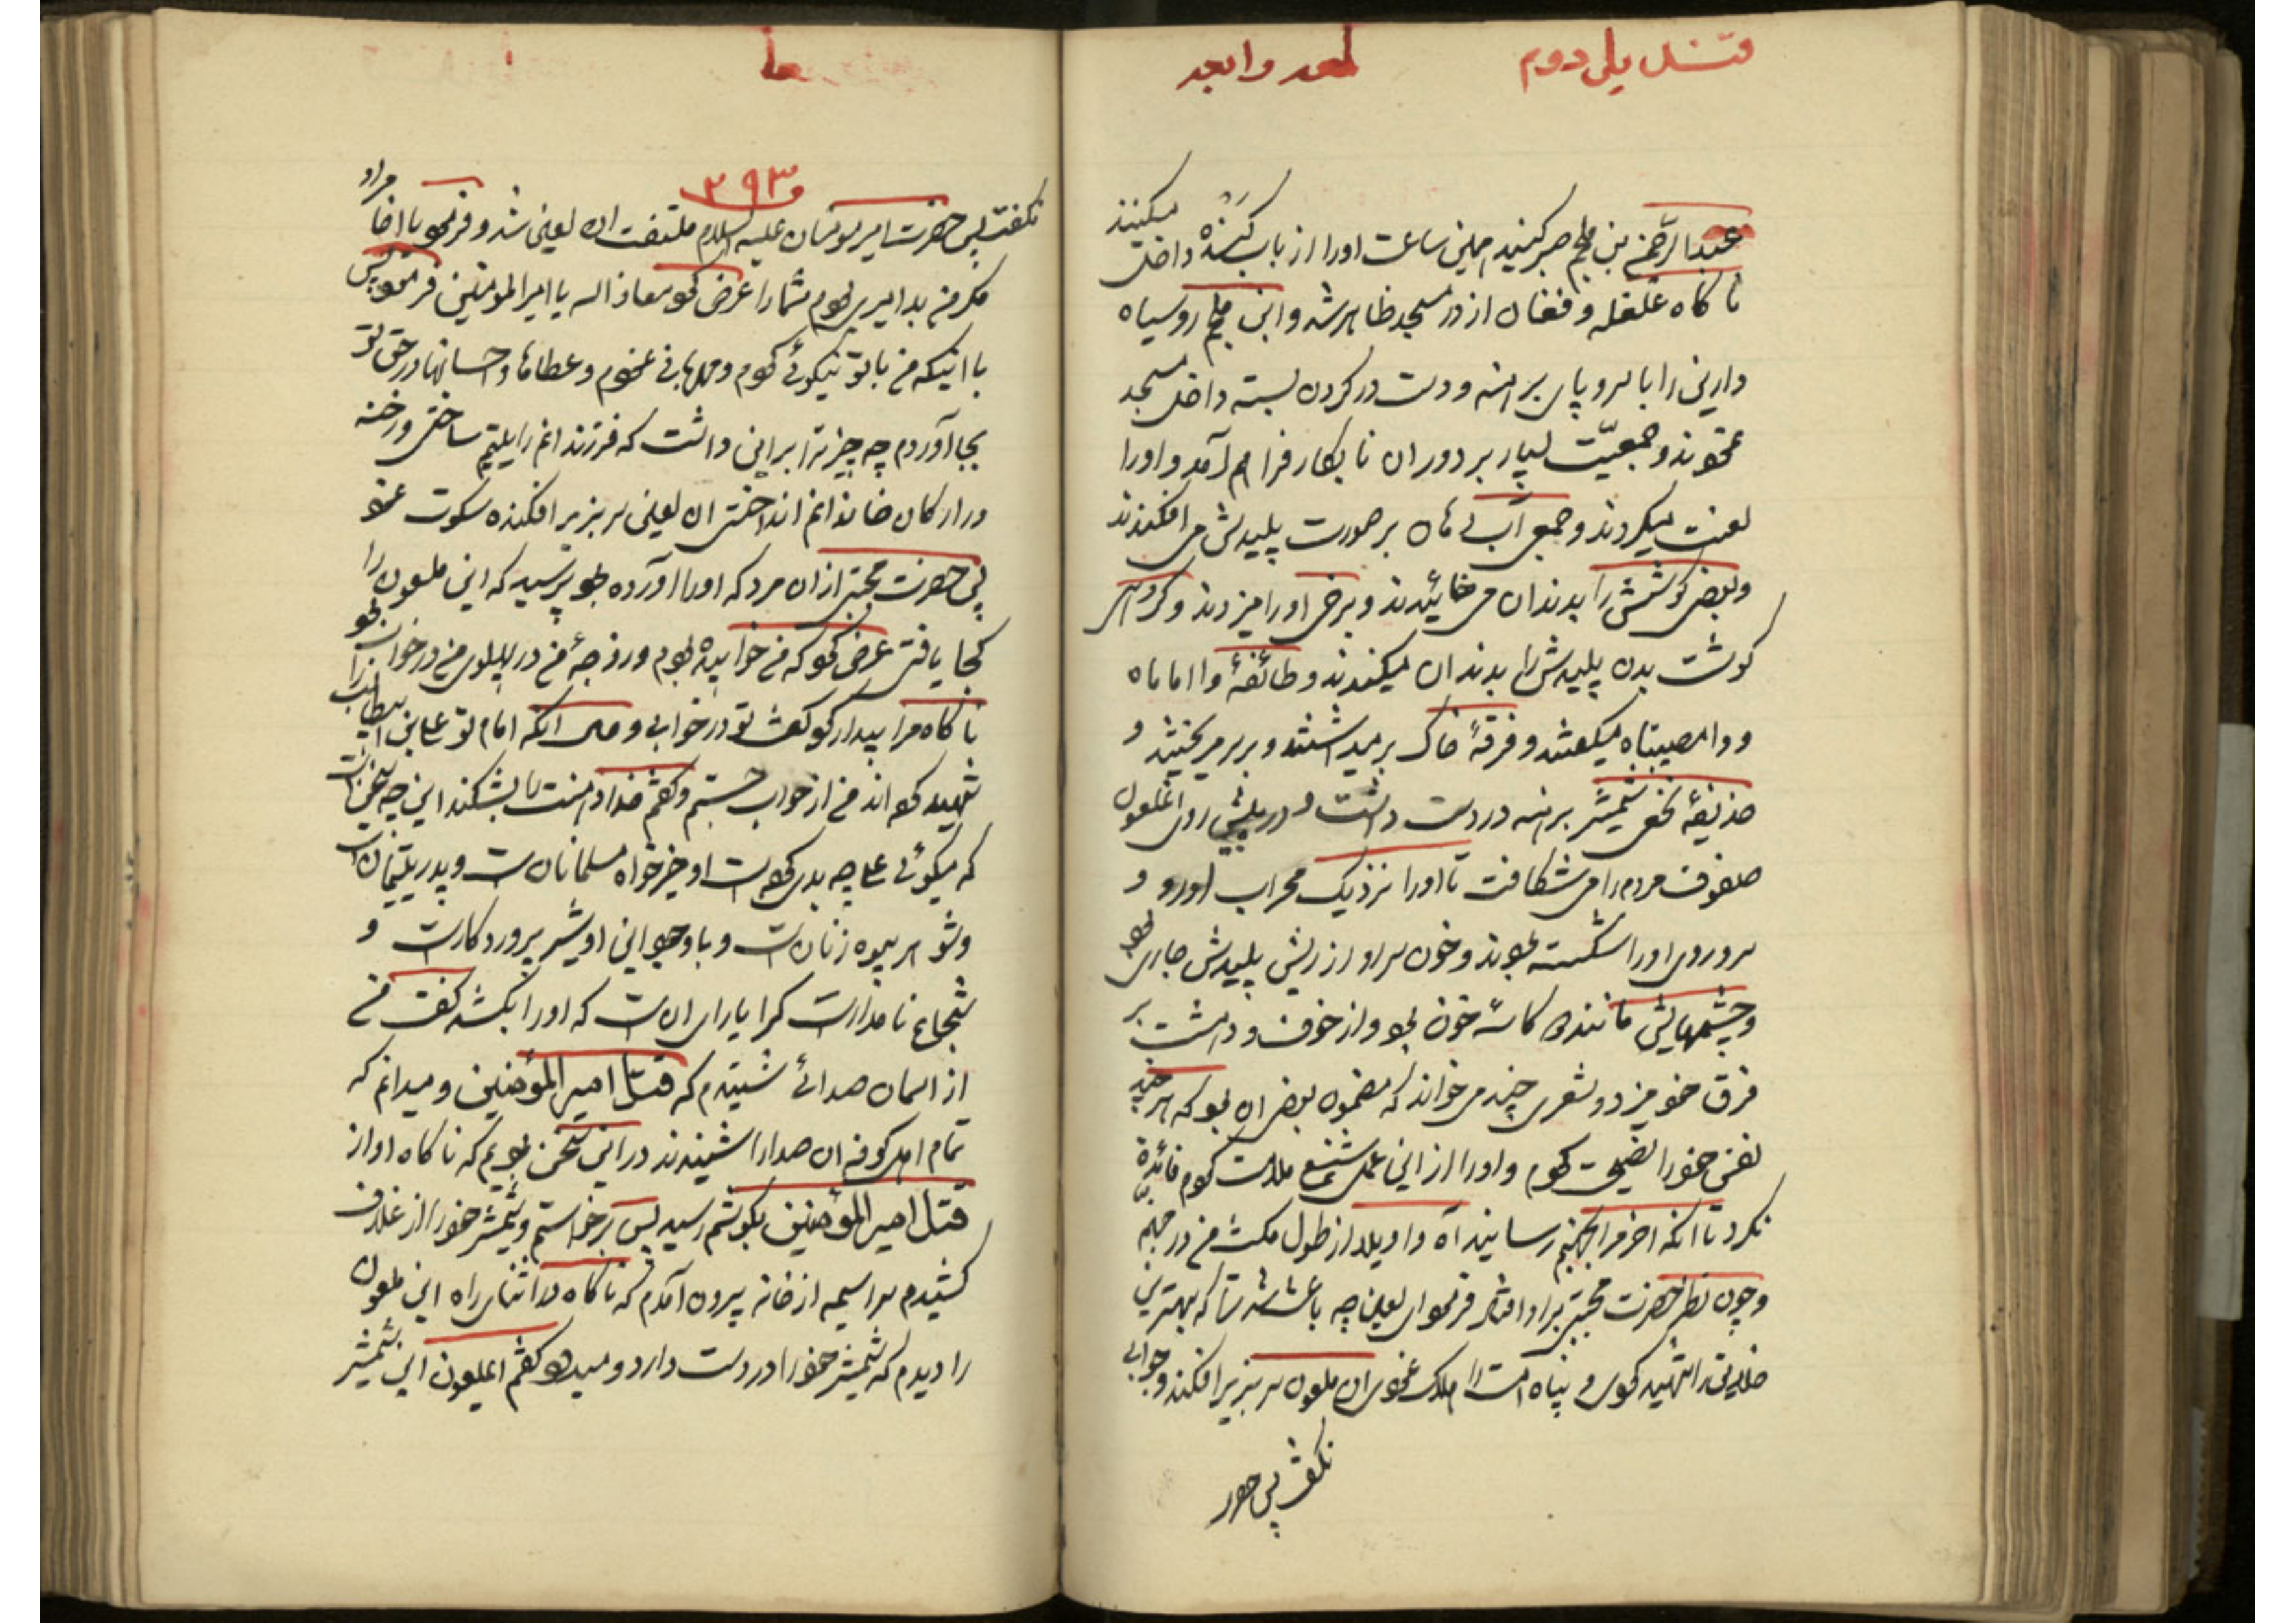 قندیل دوم
عبدالرحمن بن ملجم صبر کنید همین ساعت اورا از باب کنده داخل میکنند
ناکاه غلغله و فغان از در مسجد ظاهر شد و ابن ملجم روسیاه
دارین را با سر و پای برهنه و دست در کردن بسته داخل مسجد
نمودند و جمعیت بسیار بر دور ان نابکار فراهم آمد و اورا
لعنت میکردند و جمعی آب دهان بر صورت پلیدش می افکندند
و بعضی کوشتش را بدندان می خائیدند و برخی اورا میزدند و کروهی
کوشت بدن پلیدش را بدندان میکندند و طائفهٔ وا اماماه
و وا مصیبتاه میکفتند و فرقهٔ خاک بر میداشتند و بر سر میریختند و
حذیفهٔ نخعی شمشیر برهنه در دست داشت و در پیش روی انملعون
صفوف مردم را می شکافت تا اورا نزدیک محراب اورد و
سر و روی اورا شکسته بودند و خون سر او از ریش پلیدش جاری بود
و چشمهایش مانند دو کاسهٔ خون بود و از خوف و دهشت بر
فرق خود میزد و شعری چند می خواند که مضمون بعضی ان بود که هر چند
نفس خود را نصیحت کردم و اورا از این عمل شنیع ملامت کردم فائدهٔ
نکرد تا انکه اخر مرا بجهنم رسانید آه و اویلا از طول مکث من در جهنم
و چون نظر حضرت مجتبی بر او افتاد فرمود ای لعین چه باعث شد ترا که بهترین
خلایق را شهید کردی و پناه امت را هلاک نمودی ان ملعون سر بزیر افکند و جوابی
نکفت پس حضرت
۳۹۳
نکفت پس حضرت امیر مومنان علیه السلام ملتفت ان لعین شد و فرمود یا اخا مراد
مکر من بد امیری بودم شما را عرض کرد معاذ اله یا امیر المومنین فرمود پس
با اینکه من با تو نیکوئی کردم و مهربانی نمودم و عطاها و احسانها در حق تو
بجا آوردم چه چیز ترا بر این داشت که فرزندانم را یتیم ساختی و رخنه
در ارکان خاندانم انداختی ان لعین سر بزیر افکنده سکوت نمود
پس حضرت مجتبی از ان مرد که اورا آورده بود پرسید که این ملعون را
کجا یافتی عرض کرد که من خوابیده بودم و زوجهٔ من در پهلوی من در خواب بود
ناکاه مرا بیدار کرد کفت تو در خوابی و حال انکه امام تو علی بن ابیطالب را
شهید کرده اند من از خواب جستم و کفتم خدا دهنت را بشکند این چه سخن است
که میکوئی علی چه بدی کرده است او خیر خواه مسلمانان است و پدر یتیمان است
و شوهر بیوه زنان است و با وجود این او شیر پروردکار است و
شجاع نامدار است کرا یارای ان است که اورا بکشد کفت من
از اسمان صدائی شنیدم که قتل امیر المؤمنین و میدانم که
تمام اهل کوفه ان صدا را شنیدند در این سخن بودیم که ناکاه اواز
قتل امیر المؤمنین بکوشم رسید پس برخواستم و شمشیر خود را از غلاف
کشیدم سراسیمه از خانه بیرون آمدم که ناکاه در اثنای راه این ملعون
را دیدم که شمشیر خود را در دست دارد و میدود کفتم ایملعون این شمشیر